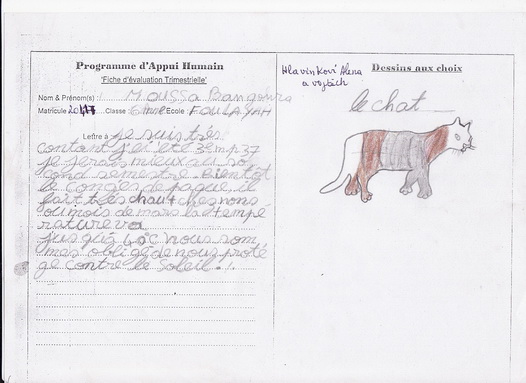 Programme d'Appui Humain
'Fiche d'évaluation Trimestrielle'
Nom & Prénom(s) : Moussa Bangoura
Matricule Classe : 6ème Ecole : FOULAYAH
Lettre à : je suis très
contant j'ai été 3e mp 37
je ferais mieux au se
gond semestre Bientot
le conges de paque, il
fait très chaut ches nous
ou mois de mars la tempé
rature va
jus qu'à c nous som
mes obligé de nous proté
gé contre le soleil.
Hlavinkoví Alena
a Vojtěch
Dessins aux choix
le chat